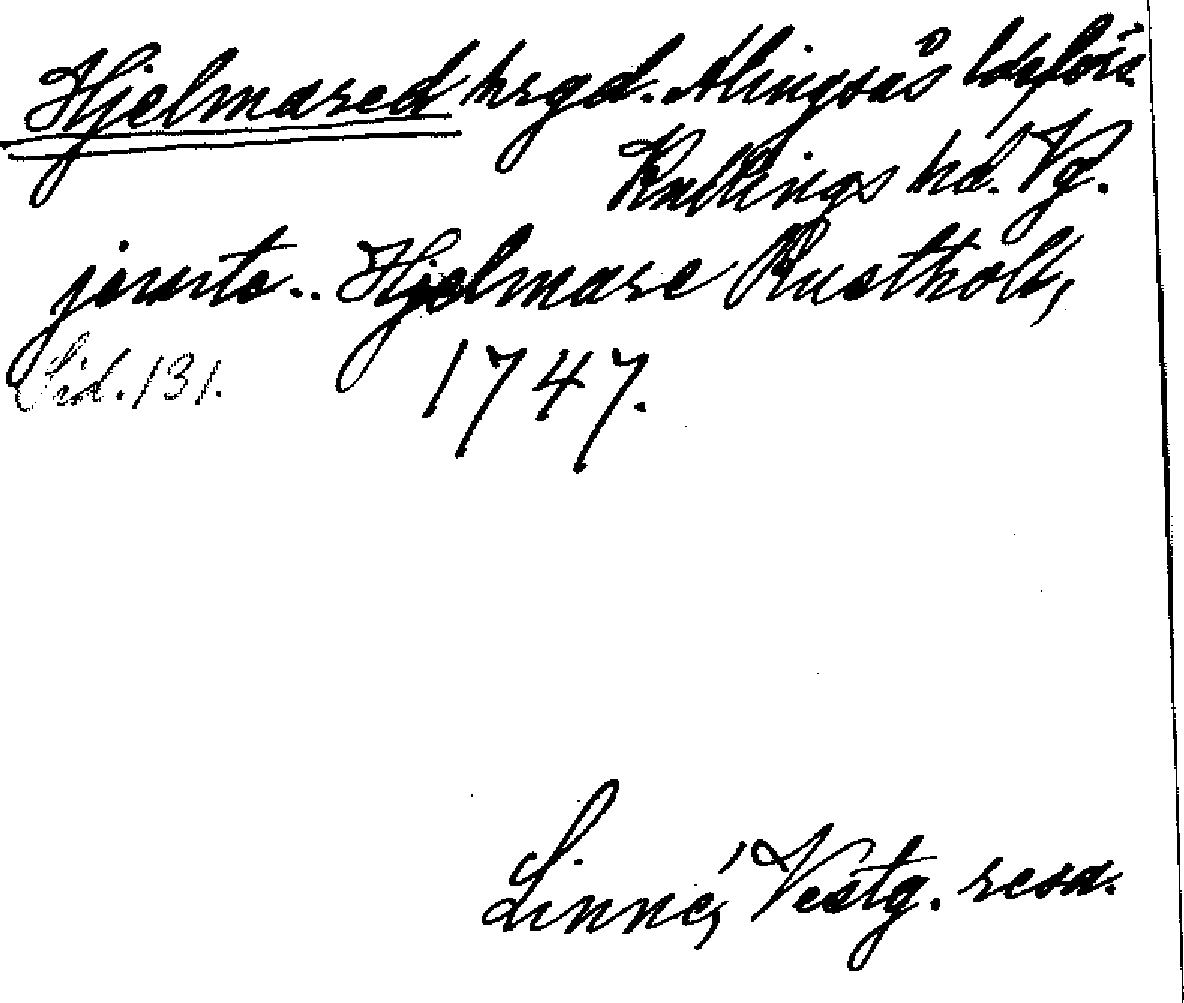 Hjelmared hrgd. Alingsås ldsförs.
Kullings hd. Vg.
jemte.. Hjelmare Rusthåll,
Sid. 131. 1747.
Linné, Vestg. resa.